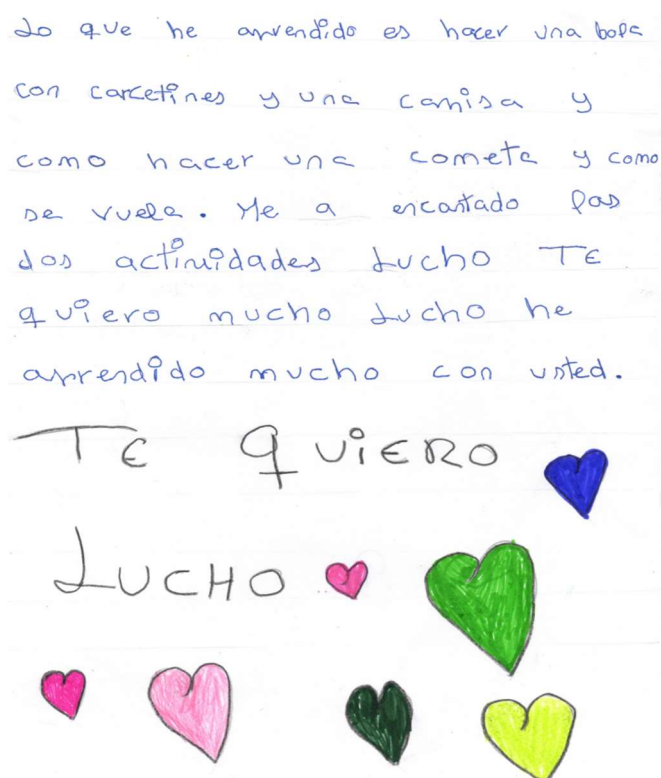 Lo que he aprendido es hacer una bola
con carcetines y una camisa y
como hacer una cometa y como
se vuela. Me a encantado las
dos actividades Lucho TE
quiero mucho Lucho he
aprendido mucho con usted.
TE QUIERO
LUCHO